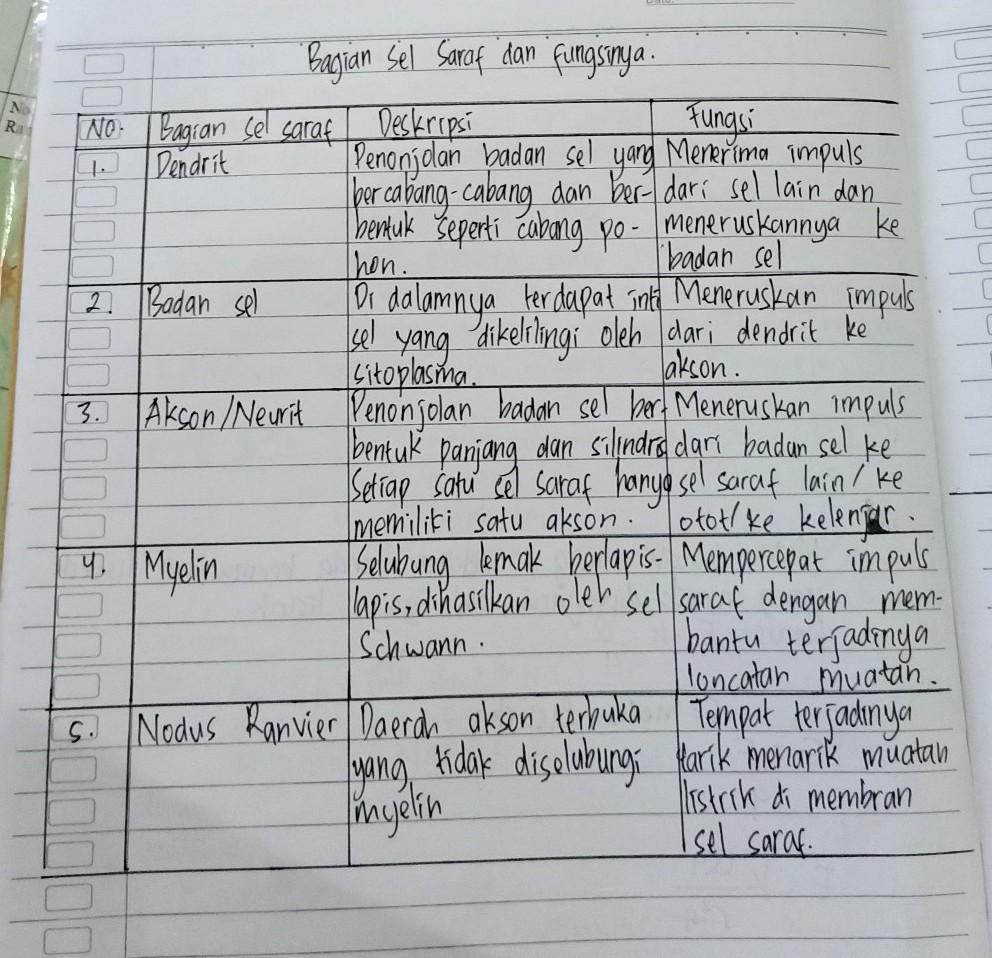 Bagian Sel Saraf dan fungsinya.
NO. Bagian sel saraf Deskripsi Fungsi
1. Dendrit Penonjolan badan sel yang Menerima impuls
bercabang-cabang dan ber- dari sel lain dan
bentuk seperti cabang po- meneruskannya ke
hon. badan sel
2. Badan sel Di dalamnya terdapat inti Meneruskan impuls
sel yang dikelilingi oleh dari dendrit ke
sitoplasma. akson.
3. Akson/Neurit Penonjolan badan sel ber- Meneruskan impuls
bentuk panjang dan silindris dari badan sel ke
Setiap satu sel saraf hanya sel saraf lain/ke
memiliki satu akson. otot/ke kelenjar.
4. Myelin Selubung lemak berlapis- Mempercepat impuls
lapis, dihasilkan oleh sel saraf dengan mem-
Schwann. bantu terjadinya
loncatan muatan.
5. Nodus Ranvier Daerah akson terbuka Tempat terjadinya
yang tidak diselubungi tarik menarik muatan
myelin listrik di membran
sel saraf.